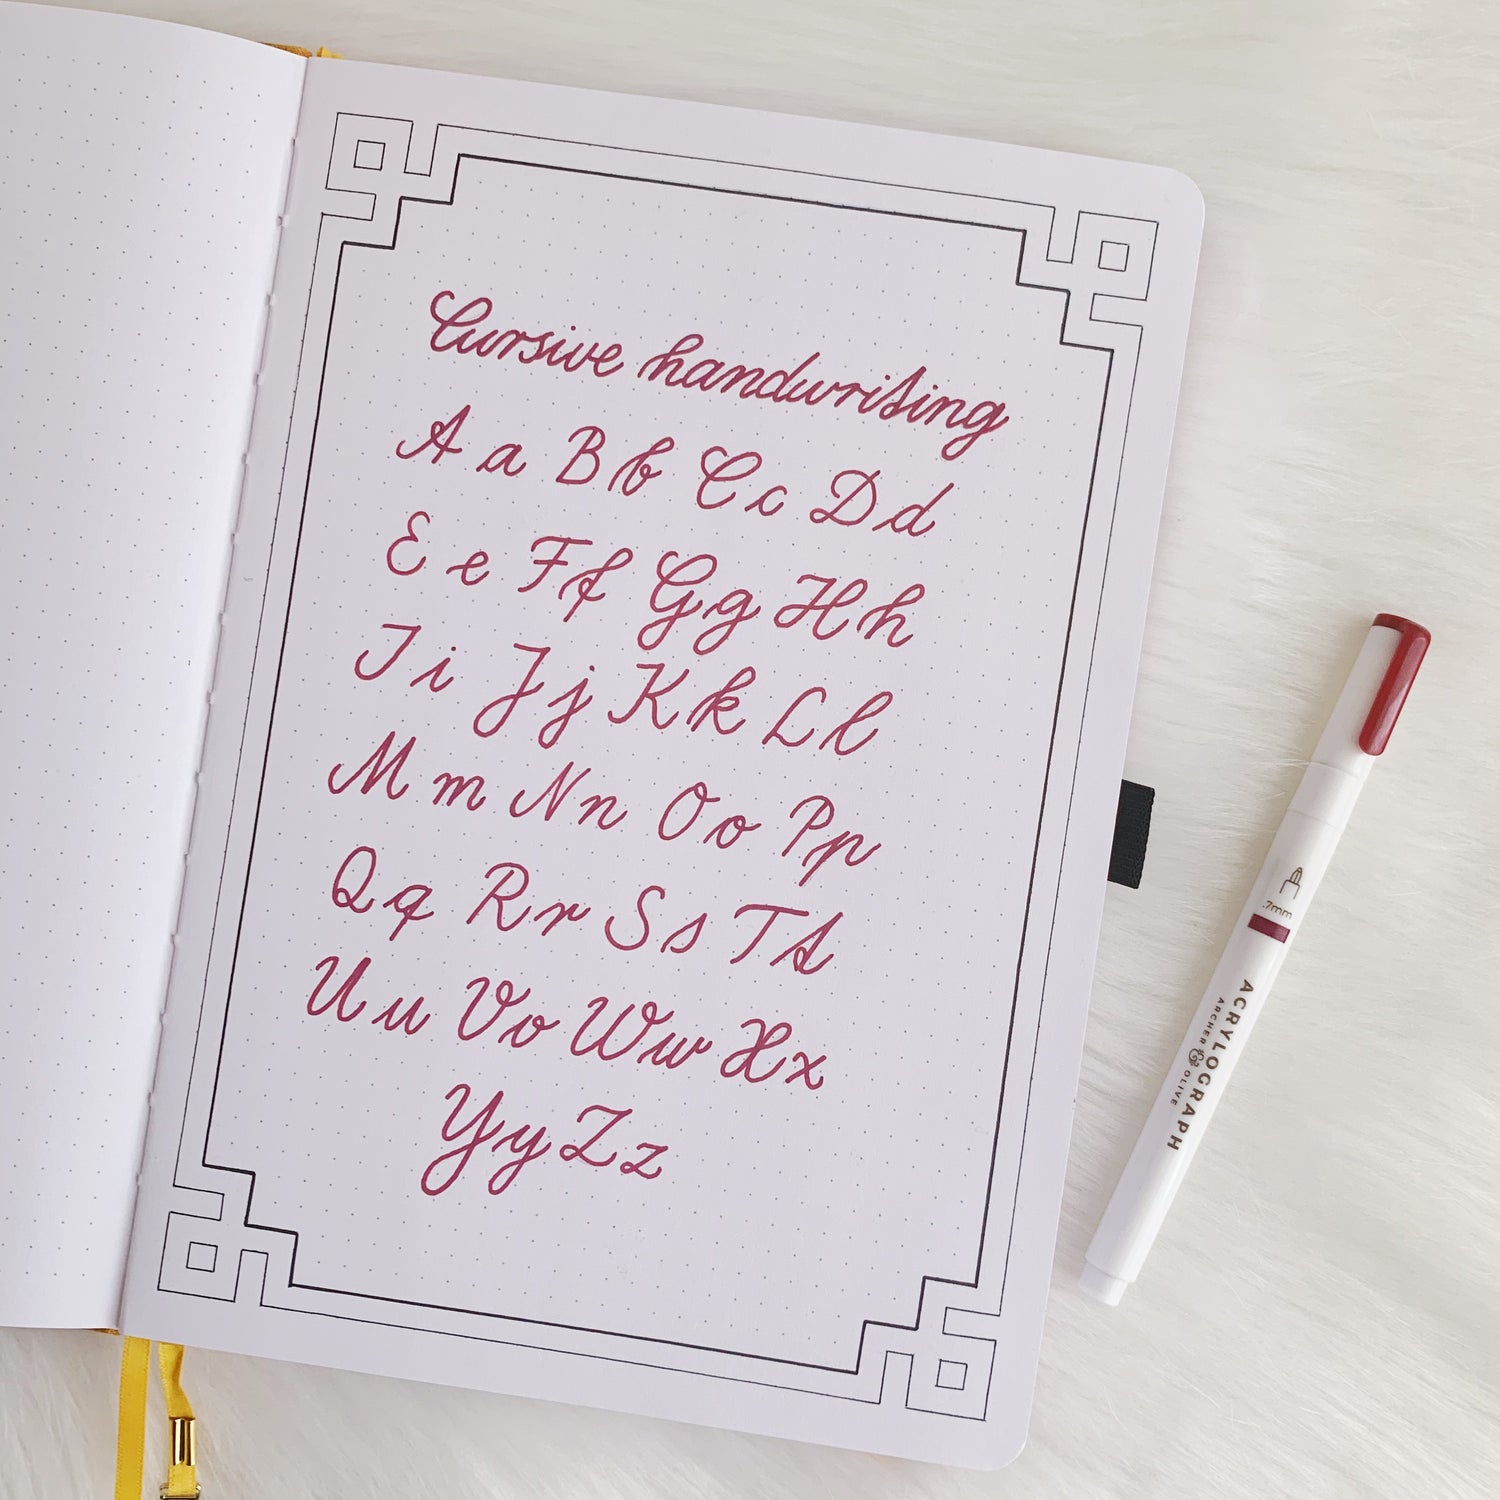 Cursive handwriting
A a B b C c D d
E e F f G g H h
I i J j K k L l
M m N n O o P p
Q q R r S s T t
U u V v W w X x
Y y Z z
.7mm
ACRYLOGRAPH
ARCHER & OLIVE